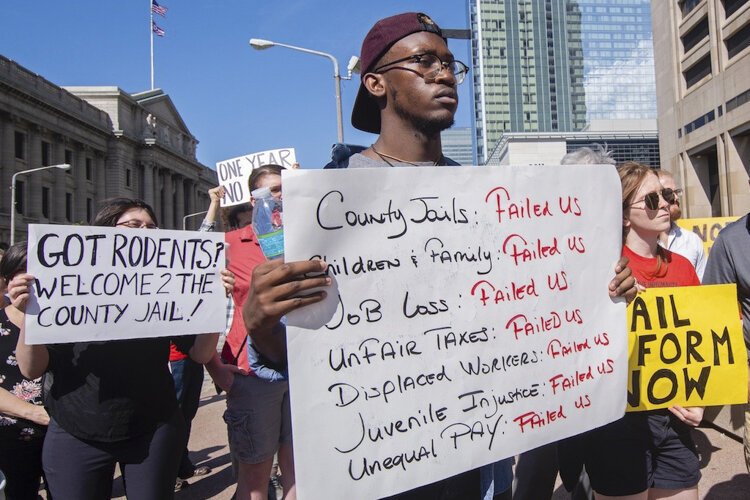 ONE YEAR
NO
GOT RODENTS?
WELCOME 2 THE
COUNTY JAIL!
County Jails: Failed us
Children & Family: Failed us
Job Loss: Failed us
Unfair Taxes: Failed us
Displaced Workers: Failed us
Juvenile Injustice: Failed us
Unequal Pay: Failed us
NO
AIL
FORM
NOW